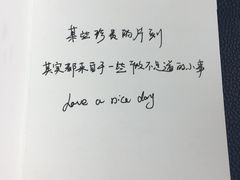 某些珍贵的片刻
其实都来自于一些微不足道的小事
Have a nice day